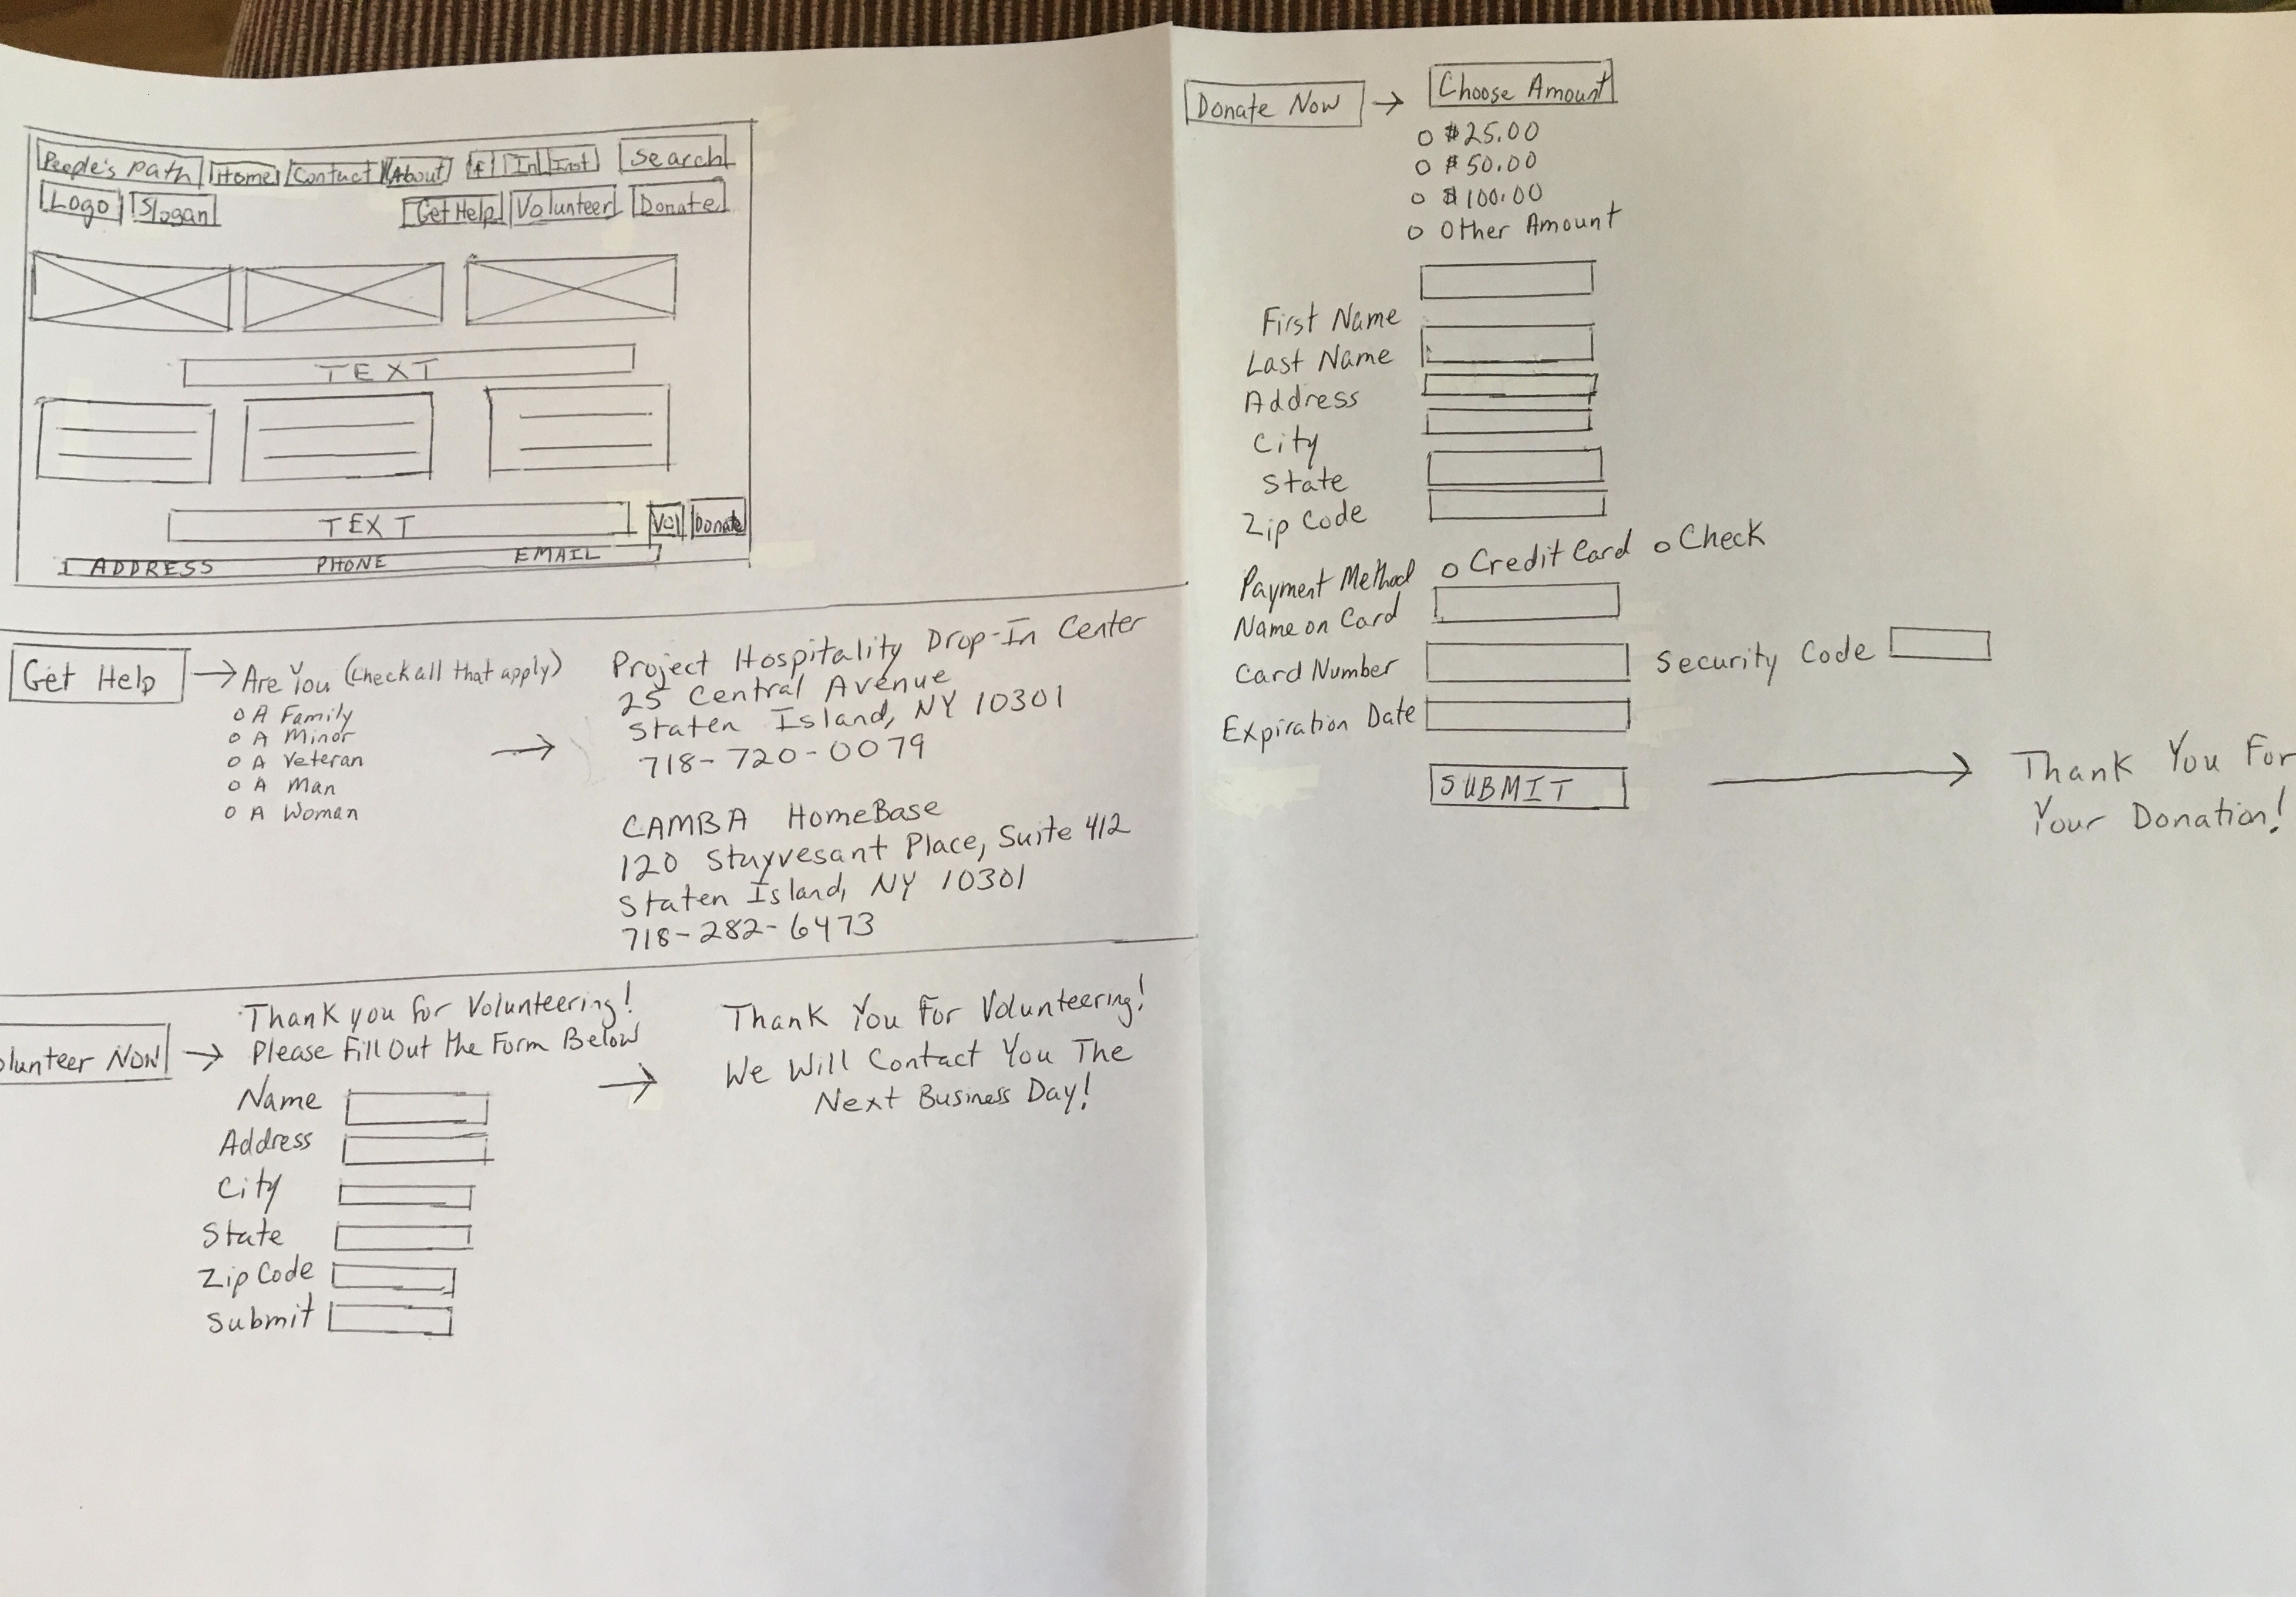 People's Path Home Contact About f In Inst Search
Logo Slogan Get Help Volunteer Donate
TEXT
TEXT Vol Donate
ADDRESS PHONE EMAIL
Get Help Are You (Check all that apply)
O A Family
O A Minor
O A Veteran
O A Man
O A Woman
Project Hospitality Drop-In Center
25 Central Avenue
Staten Island, NY 10301
718-720-0079
CAMBA HomeBase
120 Stuyvesant Place, Suite 412
Staten Island, NY 10301
718-282-6473
olunteer Now
Thank you for Volunteering!
Please Fill Out the Form Below
Name
Address
City
State
Zip Code
Submit
Thank You For Volunteering!
We Will Contact You The
Next Business Day!
Donate Now Choose Amount
O $25.00
O $50.00
O $100.00
O Other Amount
First Name
Last Name
Address
City
State
Zip Code
Payment Method O Credit Card O Check
Name on Card
Card Number Security Code
Expiration Date
SUBMIT
Thank You For
Your Donation!